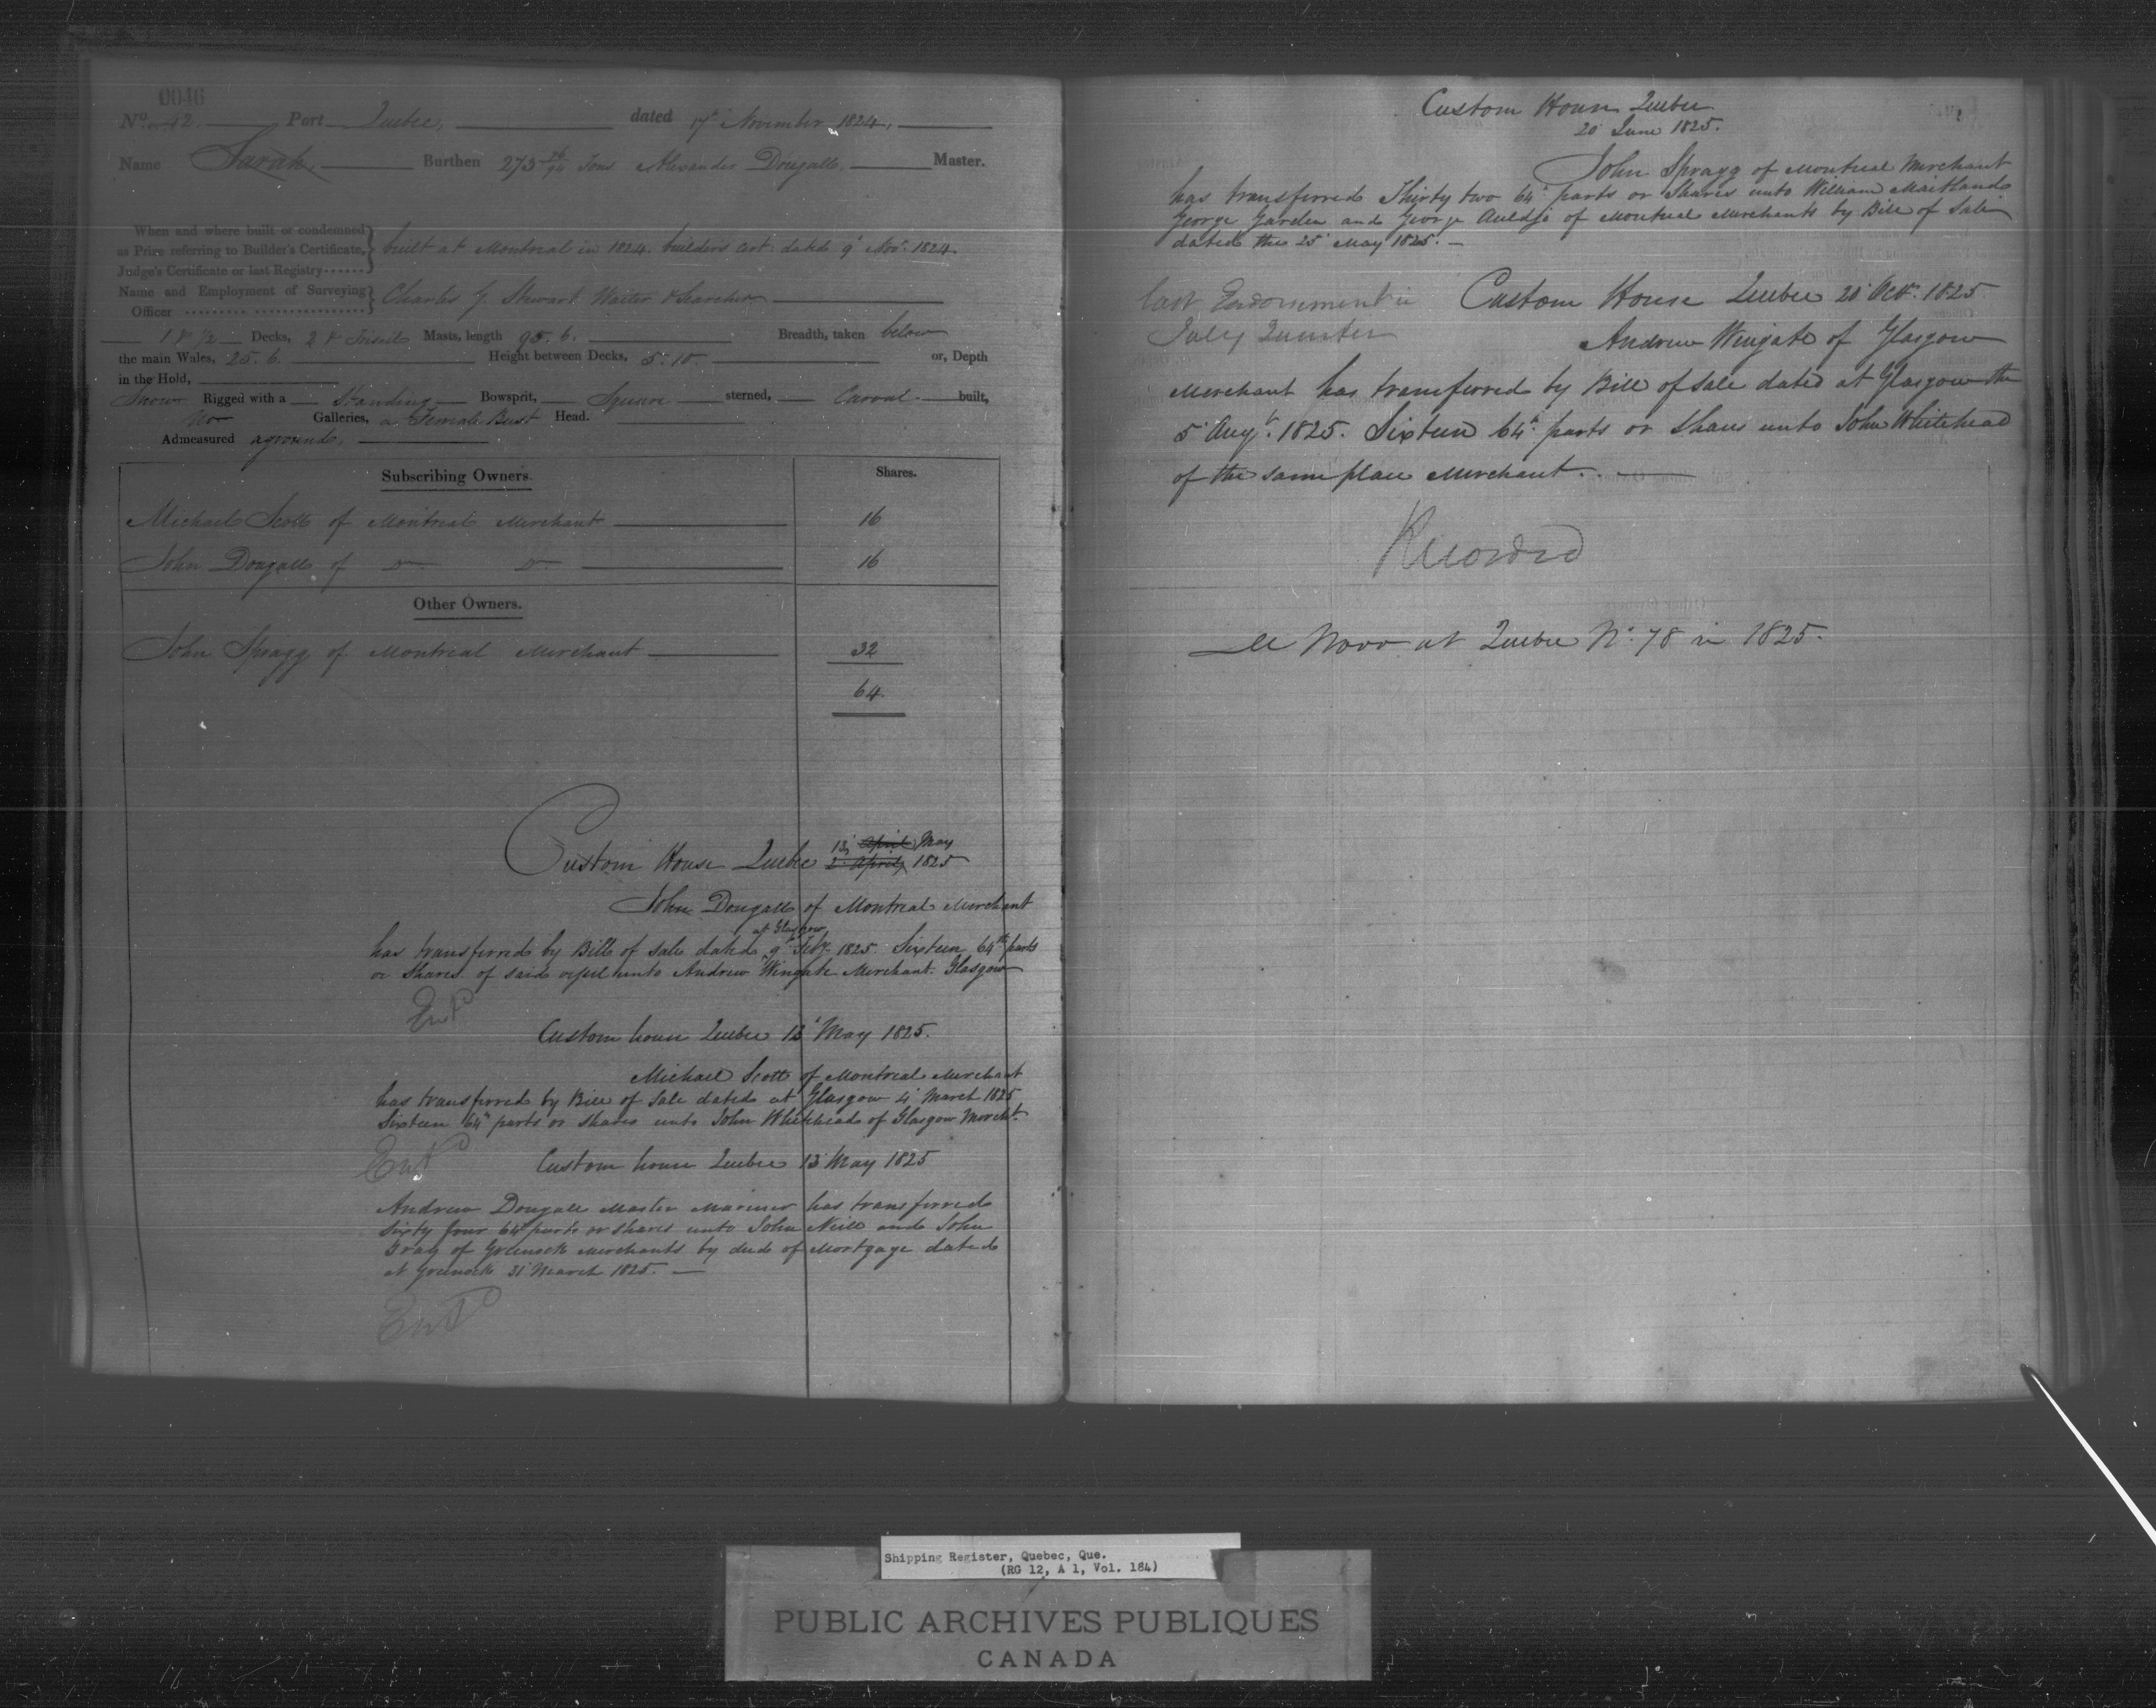 0046
No. 42 Port Quebec, dated 17th November 1824,
Name Sarah, Burthen 273 26/94 Tons Alexander Dougall, Master.
When and where built or condemned
as Prize referring to Builder's Certificate, built at Montreal in 1824. builders cert. dated 9th Novr. 1824.
Judge's Certificate or last Registry
Name and Employment of Surveying
Officer Charles G Stewart Waiter & Searcher
1 & 1/2 Decks, 2 & Trisail Masts, length 95.6. Breadth, taken below
the main Wales, 25.6. Height between Decks, 5.10. or, Depth
in the Hold,
Snow Rigged with a Standing Bowsprit, Square sterned, Carval built,
No Galleries, a Female Bust Head.
Admeasured aground,
Subscribing Owners. Shares.
Michael Scott of Montreal Merchant 16
John Dougall of Do Do 16
Other Owners.
John Spragg of Montreal Merchant 32
64
13 April May
Custom House Quebec 2 April, 1825
John Dougall of Montreal Merchant
at Glasgow
has transferred by Bill of Sale dated 9th Feby. 1825. Sixteen 64th parts
or Shares of said vessel unto Andrew Wingate Merchant. Glasgow
Entd
Custom house Quebec 13 May 1825.
Michael Scott of Montreal Merchant
has transferred by Bill of Sale dated at Glasgow 4 March 1825
Sixteen 64th parts or Shares unto John Whitehead of Glasgow Mercht.
Entd
Custom house Quebec 13 May 1825
Andrew Dougall Master Mariner has transferred
Sixty four 64th parts or shares unto John Neill and John
Gray of Greenock Merchants by deed of Mortgage dated
at Greenock 31 March 1825.
Entd
Custom House Quebec
20 June 1825.
John Spragg of Montreal Merchant
has transferred Thirty two 64th parts or Shares unto William Maitland
George Garden and George Auldjo of Montreal Merchants by Bill of Sale
dated the 25 May 1825.
last Endorsement in Custom House Quebec 20 Octr. 1825
July Quarter Andrew Wingate of Glasgow
Merchant has transferred by Bill of Sale dated at Glasgow the
5 Augt. 1825. Sixteen 64th parts or Shares unto John Whitehead
of the same place Merchant.
Recorded
de Novo at Quebec No. 78 in 1825.
Shipping Register, Quebec, Que.
(RG 12, A 1, Vol. 184)
PUBLIC ARCHIVES PUBLIQUES
CANADA